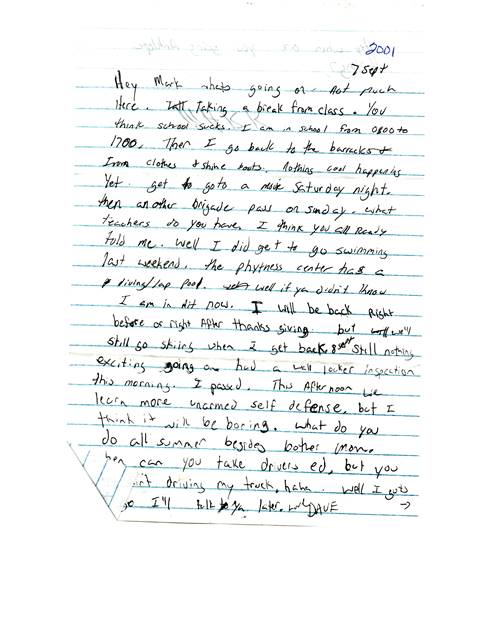 2001
7 Sept
Hey Mark whats going on - Not much
Here. Taking a break from class. You
think school sucks. I am in school from 0800 to
1700. Then I go back to the barracks &
Iron clothes & shine boots. Nothing cool happening
Yet. get to goto a Saturday night.
then another brigade pass on Sunday. what
teachers do you have, I think you all Ready
told me. Well I did get to go swimming
last weekend. the phytness center has a
diving/lap pool. well if ya didn't know
I am in Ait now. I will be back Right
before or right After thanks giving. but we'll
still go skiing when I get back. 8 sept Still nothing
exciting going on had a wall locker inspection
this morning. I passed. This Afternoon we
learn more unarmed self defense, but I
think it will be boring. What do you
do all summer besides bother mom.
hen can you take drivers ed, but you
in't driving my truck, haha. Well I gots
go I'll talk to ya later. DAVE →